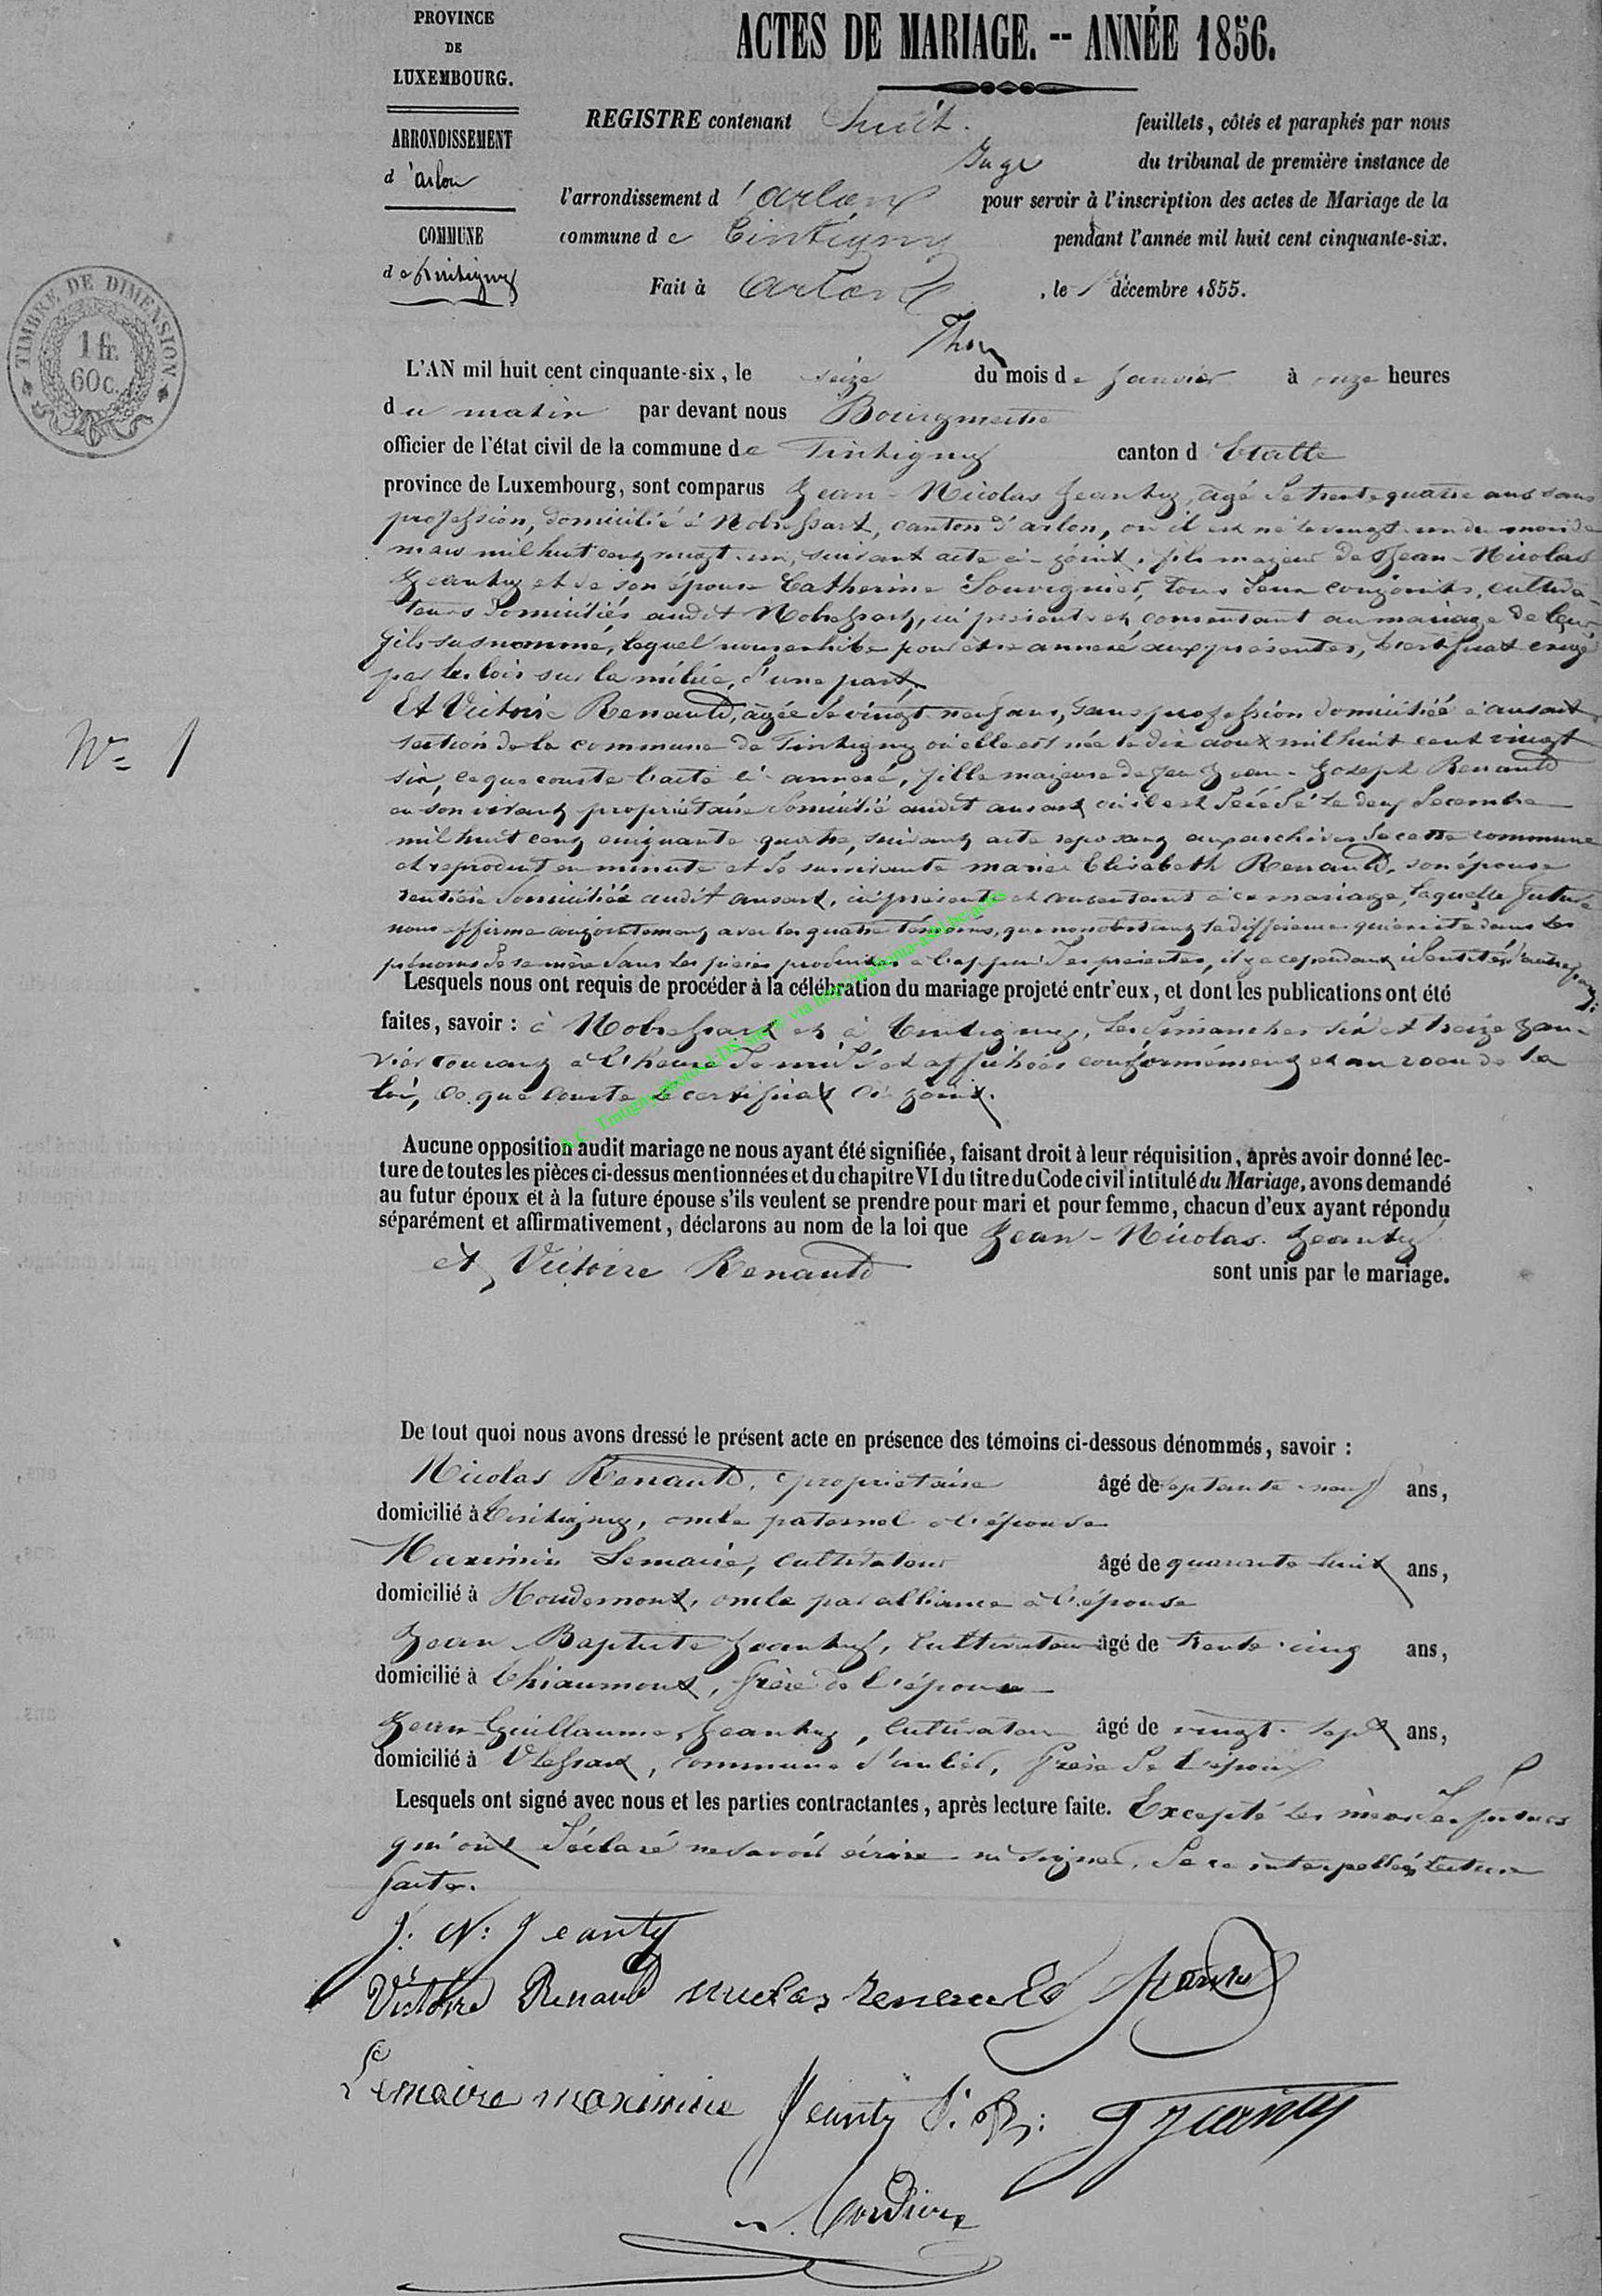 PROVINCE
DE
LUXEMBOURG.
ARRONDISSEMENT
d'arlon
COMMUNE
de Tintigny
TIMBRE DE DIMENSION
1 fr.
60 c.
ACTES DE MARIAGE. -- ANNÉE 1856.
REGISTRE contenant huit feuillets, côtés et paraphés par nous
Juge du tribunal de première instance de
l'arrondissement d'arlon pour servir à l'inscription des actes de Mariage de la
commune de Tintigny pendant l'année mil huit cent cinquante-six.
Fait à Arlon, le décembre 1855.
L'AN mil huit cent cinquante-six, le seize du mois de janvier à onze heures
du matin par devant nous Bourgmestre
officier de l'état civil de la commune de Tintigny canton d'Etalle
province de Luxembourg, sont comparus Jean-Nicolas Jeanty, âgé de trente quatre ans sans
profession, domicilié à Nobressart, canton d'arlon, où il est né le vingt un du mois de
mars mil huit cent vingt-un, suivant acte ci-joint, fils majeur de Jean-Nicolas
Jeanty et de son épouse Catherine Souvignier, tous deux conjoints, cultiva-
teurs domiciliés audit Nobressart, ici présents et consentant au mariage de leur
fils susnommé, lequel nous exhibe pour être annexé aux présentes, le certificat exigé
par les lois sur la milice, d'une part,
N° 1
Et Victoire Renauld, âgée de vingt-neuf ans, sans profession domiciliée à ansart
section de la commune de Tintigny où elle est née le dix août mil huit cent vingt
six, ce que conste l'acte ci-annexé, fille majeure de feu Jean-Joseph Renauld
en son vivant propriétaire domicilié audit ansart où il est décédé le deux décembre
mil huit cent cinquante quatre, suivant acte reposant aux archives de cette commune
et reproduit en minute et de survivante marie Elisabeth Renauld, son épouse
rentière domiciliée audit ansart, ici présente et consentant à ce mariage, laquelle future
nous affirme conjointement avec les quatre témoins, que nonobstant la différence qui existe dans les
prénoms de sa mère dans les pièces produites à l'appui des présentes, il y a cependant identité, d'autre part;
Lesquels nous ont requis de procéder à la célébration du mariage projeté entr'eux, et dont les publications ont été
faites, savoir : à Nobressart et à Tintigny, les dimanches six et treize jan-
vier courant à l'heure de midi et affichées conformément et au vœu de la
loi, ce que conste le certificat ci-joint.
Aucune opposition audit mariage ne nous ayant été signifiée, faisant droit à leur réquisition, après avoir donné lec-
ture de toutes les pièces ci-dessus mentionnées et du chapitre VI du titre du Code civil intitulé du Mariage, avons demandé
au futur époux et à la future épouse s'ils veulent se prendre pour mari et pour femme, chacun d'eux ayant répondu
séparément et affirmativement, déclarons au nom de la loi que Jean-Nicolas Jeanty
et Victoire Renauld sont unis par le mariage.
De tout quoi nous avons dressé le présent acte en présence des témoins ci-dessous dénommés, savoir :
Nicolas Renauld, propriétaire âgé de septante-neuf ans,
domicilié à Tintigny, oncle paternel à l'épouse
Maximin Lemaire, cultivateur âgé de quarante huit ans,
domicilié à Houdemont, oncle par alliance à l'épouse
Jean-Baptiste Jeanty, cultivateur âgé de trente-cinq ans,
domicilié à Thiaumont, frère de l'époux
Jean-Guillaume Jeanty, cultivateur âgé de vingt-sept ans,
domicilié à Vlessart, commune d'anlier, frère de l'époux
Lesquels ont signé avec nous et les parties contractantes, après lecture faite. Excepté les mères des futurs
qui ont déclaré ne savoir écrire ni signer, de ce interpellées, lecture
faite.
J: N: Jeanty
Victoire Renauld nicolas renauld Jeanty
Lemaire maximin Jeanty J. B: G Jeanty
Cordier